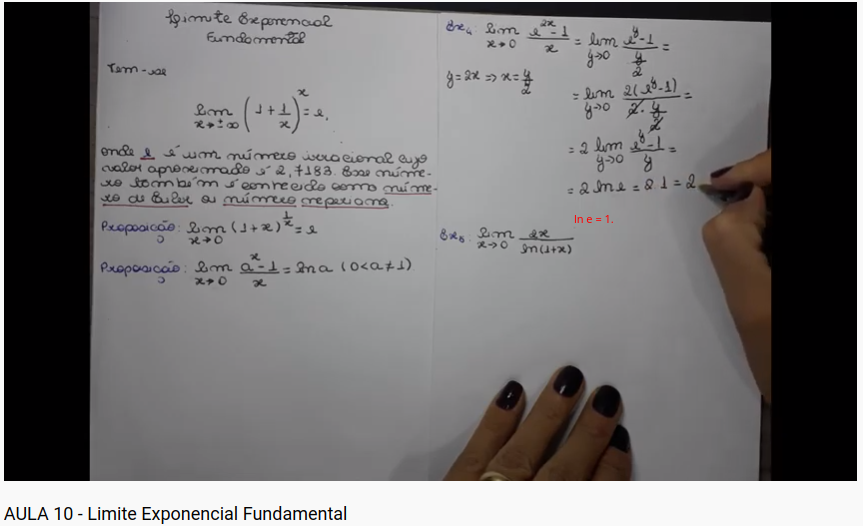 Limite Exponencial
Fundamental
Tem-se
lim x→±∞ (1 + 1/x)^x = e,
onde e é um número irracional cujo
valor aproximado é 2,7183. Esse núme-
ro também é conhecido como núme-
ro de Euler ou número neperiano.
Proposição: lim x→0 (1+x)^(1/x) = e
Proposição: lim x→0 (a^x - 1)/x = ln a (0<a≠1)
Ex4: lim x→0 (e^(2x) - 1)/x = lim y→0 (e^y - 1)/(y/2) =
y=2x ⇒ x=y/2
= lim y→0 2(e^y - 1)/(2 · y/2) =
= 2 lim y→0 (e^y - 1)/y =
= 2 ln e = 2.1 = 2
ln e = 1.
Ex5: lim x→0 2x/ln(1+x)
AULA 10 - Limite Exponencial Fundamental